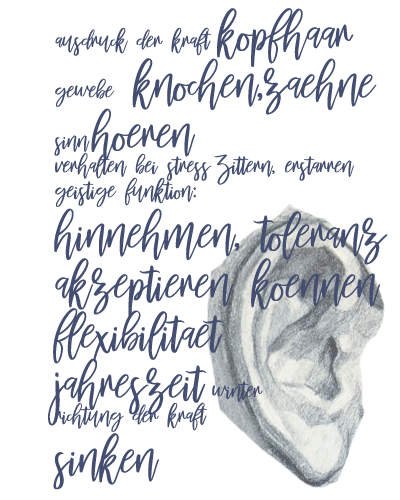 ausdruck der kraft kopfhaar
gewebe knochen,zaehne
sinn hoeren
verhalten bei stress Zittern, erstarren
geistige funktion:
hinnehmen, toleranz
akzeptieren koennen
flexibilitaet
jahreszeit winter
richtung der kraft
sinken